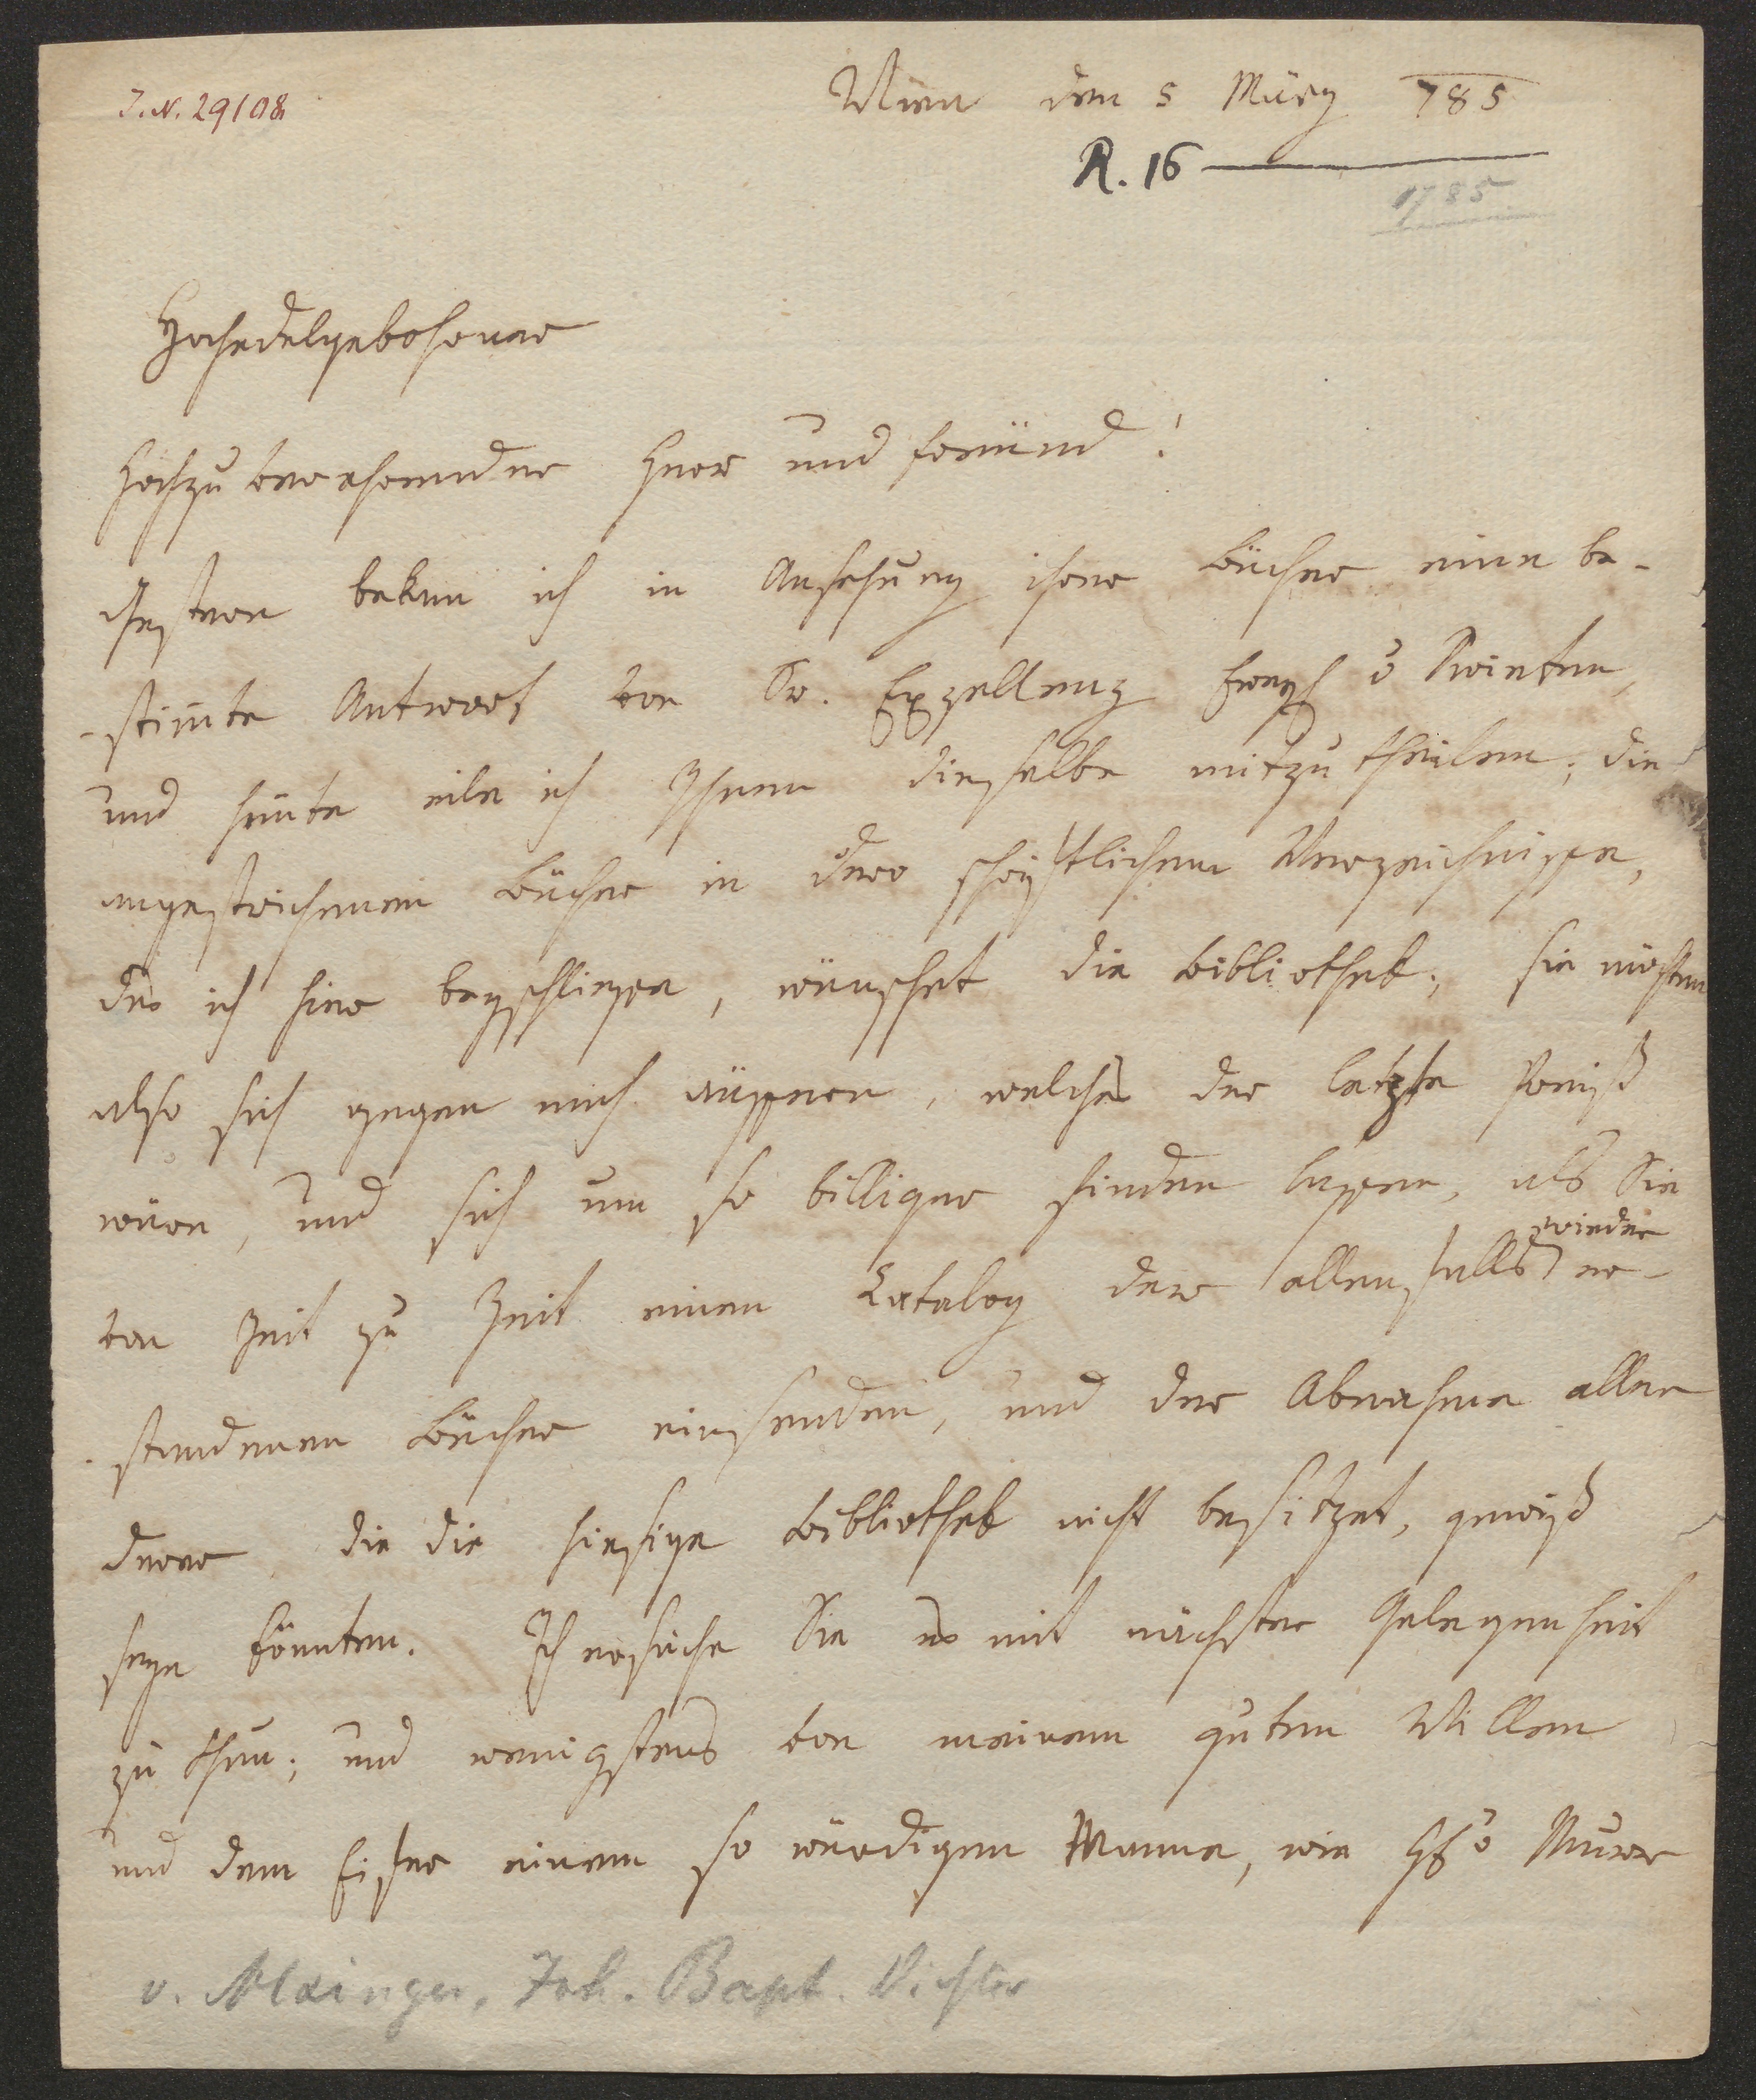 J. N. 29108
Wien den 5 März 785
R. 16
1785
Hochedelgebohrner
Hochzuverehrender Herr und Freünd!
Gestern bekam ich in Ansehung ihrer Bücher eine be-
-stim̄te Antwort von Sr. Exzellenz Freyh v Swieten,
und heute eile ich Ihnen dieselbe mitzutheilen; die
angestrichenen Bücher in dero schriftlichem Verzeichnisse,
das ich hier beyschliesse, wünschet die Bibliothek; sie möchten
also sich gegen mich äüssern, welches der letzte Preiß
wäre, und sich um so billiger finden lassen, als Sie
von Zeit zu Zeit einen Katalog der allenfalls wieder er-
-standenen Bücher einsenden, und der Abnahme aller
derer die die hiesige Bibliothek nicht besitzet, gewiß
seyn könnten. Ich ersuche Sie es mit nächster Gelegenheit
zu thun; und wenigstens von meinem guten Willen
und dem Eifer einem so würdigen Manne, wie H v Murr
v. Alxinger, Joh. Bapt. Dichter